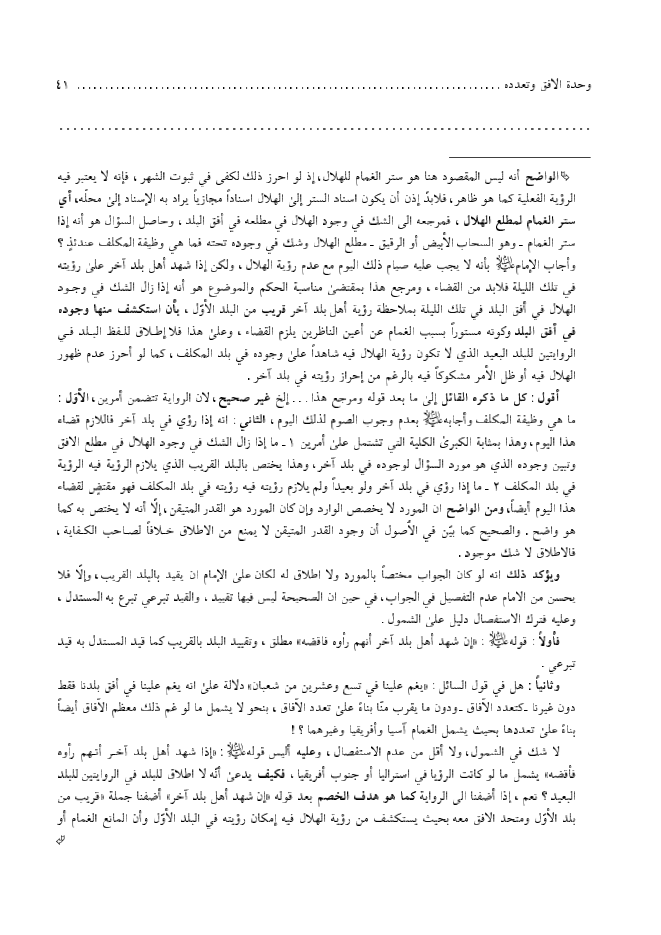 وحدة الافق وتعدده ................................................................................ ٤١
................................................................................
الواضح أنه ليس المقصود هنا هو ستر الغمام للهلال، إذ لو احرز ذلك لكفى في ثبوت الشهر ، فإنه لا يعتبر فيه
الرؤية الفعلية كما هو ظاهر، فلابدّ إذن أن يكون اسناد الستر إلى الهلال اسناداً مجازياً يراد به الإسناد إلى محلّه، أي
ستر الغمام لمطلع الهلال ، فمرجعه الى الشك في وجود الهلال في مطلعه في أفق البلد ، وحاصل السؤال هو أنه إذا
ستر الغمام ـ وهو السحاب الأبيض أو الرقيق ـ مطلع الهلال وشك في وجوده تحته فما هي وظيفة المكلف عندئذٍ ؟
وأجاب الإمام عليه السلام بأنه لا يجب عليه صيام ذلك اليوم مع عدم رؤية الهلال ، ولكن إذا شهد أهل بلد آخر على رؤيته
في تلك الليلة فلابد من القضاء ، ومرجع هذا بمقتضى مناسبة الحكم والموضوع هو أنه إذا زال الشك في وجود
الهلال في أفق البلد في تلك الليلة بملاحظة رؤية أهل بلد آخر قريب من البلد الأوّل ، بأن استكشف منها وجوده
في أفق البلد وكونه مستوراً بسبب الغمام عن أعين الناظرين يلزم القضاء ، وعلى هذا فلا إطلاق للفظ البلد في
الروايتين للبلد البعيد الذي لا تكون رؤية الهلال فيه شاهداً على وجوده في بلد المكلف ، كما لو أحرز عدم ظهور
الهلال فيه أو ظل الأمر مشكوكاً فيه بالرغم من إحراز رؤيته في بلد آخر .
أقول : كل ما ذكره القائل إلى ما بعد قوله ومرجع هذا ... إلخ غير صحيح، لان الرواية تتضمن أمرين، الأوّل :
ما هي وظيفة المكلف وأجابه عليه السلام بعدم وجوب الصوم لذلك اليوم ، الثاني : انه إذا رؤي في بلد آخر فاللازم قضاء
هذا اليوم، وهذا بمثابة الكبرى الكلية التي تشتمل على أمرين ١ ـ ما إذا زال الشك في وجود الهلال في مطلع الافق
وتبين وجوده الذي هو مورد السؤال لوجوده في بلد آخر، وهذا يختص بالبلد القريب الذي يلازم الرؤية فيه الرؤية
في بلد المكلف ٢ ـ ما إذا رؤي في بلد آخر ولو بعيداً ولم يلازم رؤيته فيه رؤيته في بلد المكلف فهو مقتضٍ لقضاء
هذا اليوم أيضاً، ومن الواضح ان المورد لا يخصص الوارد وإن كان المورد هو القدر المتيقن، إلّا أنه لا يختص به كما
هو واضح . والصحيح كما بيّن في الأصول أن وجود القدر المتيقن لا يمنع من الاطلاق خلافاً لصاحب الكفاية ،
فالاطلاق لا شك موجود .
ويؤكد ذلك انه لو كان الجواب مختصاً بالمورد ولا اطلاق له لكان على الإمام ان يقيد بالبلد القريب، وإلّا فلا
يحسن من الامام عدم التفصيل في الجواب، في حين ان الصحيحة ليس فيها تقييد ، والقيد تبرعي تبرع به المستدل ،
وعليه فترك الاستفصال دليل على الشمول .
فأولاً : قوله عليه السلام : «إن شهد أهل بلد آخر أنهم رأوه فاقضه» مطلق ، وتقييد البلد بالقريب كما قيد المستدل به قيد
تبرعي .
وثانياً : هل في قول السائل : «يغم علينا في تسع وعشرين من شعبان» دلالة على انه يغم علينا في أفق بلدنا فقط
دون غيرنا ـ كتعدد الآفاق ـ ودون ما يقرب منّا بناءً على تعدد الآفاق ، بنحو لا يشمل ما لو غم ذلك معظم الآفاق أيضاً
بناءً على تعددها بحيث يشمل الغمام آسيا وأفريقيا وغيرهما ؟ !
لا شك في الشمول، ولا أقل من عدم الاستفصال ، وعليه أليس قوله عليه السلام : «إذا شهد أهل بلد آخر أنهم رأوه
فأقضه» يشمل ما لو كانت الرؤيا في استراليا أو جنوب أفريقيا ، فكيف يدعى أنّه لا اطلاق للبلد في الروايتين للبلد
البعيد ؟ نعم ، إذا أضفنا الى الرواية كما هو هدف الخصم بعد قوله «إن شهد أهل بلد آخر» أضفنا جملة «قريب من
بلد الأوّل ومتحد الافق معه بحيث يستكشف من رؤية الهلال فيه إمكان رؤيته في البلد الأوّل وأن المانع الغمام أو